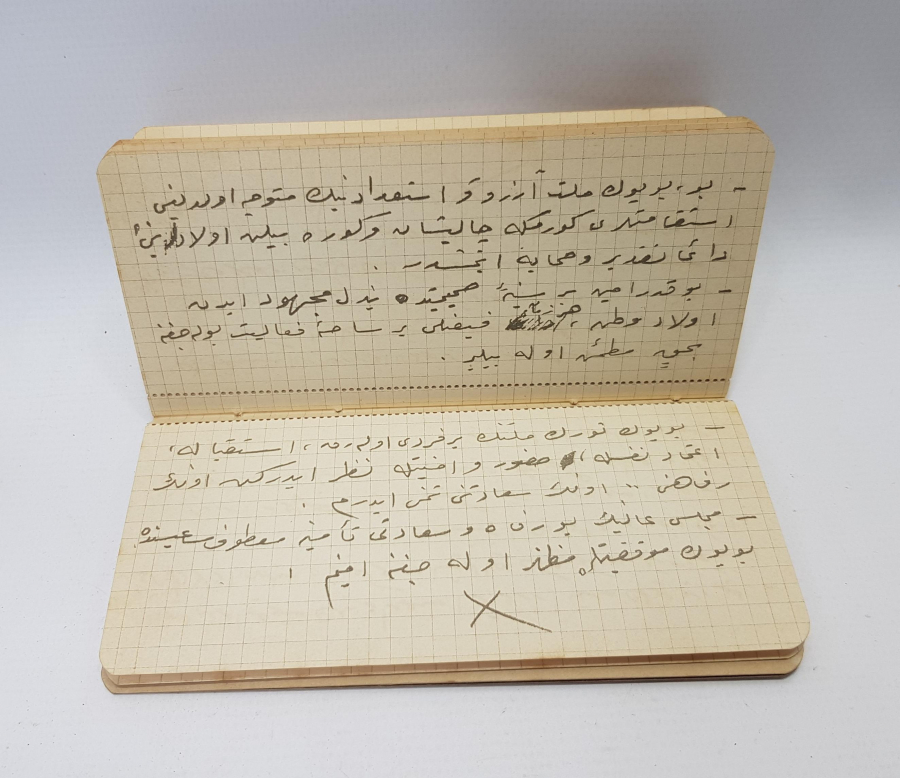 – بو، بویوك ملت آرزو و استعدادینك متوجه اولدیغی
استقامتلری كورمكه چالیشان وكوره بیلن اولادینی
دائما تقدیر وحمایه ایتمشدر .
– بوقدر امین بر صمیمیتده بذل مجهود ایدن
اولاد وطن، هر زمان فیضلی بر ساحۀ فعالیت بوله جغنه
بحق مطمئن اوله بیلیر .
– بویوك تورك ملتنك بر فردی اوله رق، استقباله،
اعتماد نفسله، حضور و امنیتله نظر ایدركن اونك
رفاهنی .. اونك سعادتنی تمنی ایدرم .
– مجلس عالینك بو رفاه و سعادتی تأمینه معطوف سعینده
بویوك موفقیتلره مظهر اوله جغنه امینم !